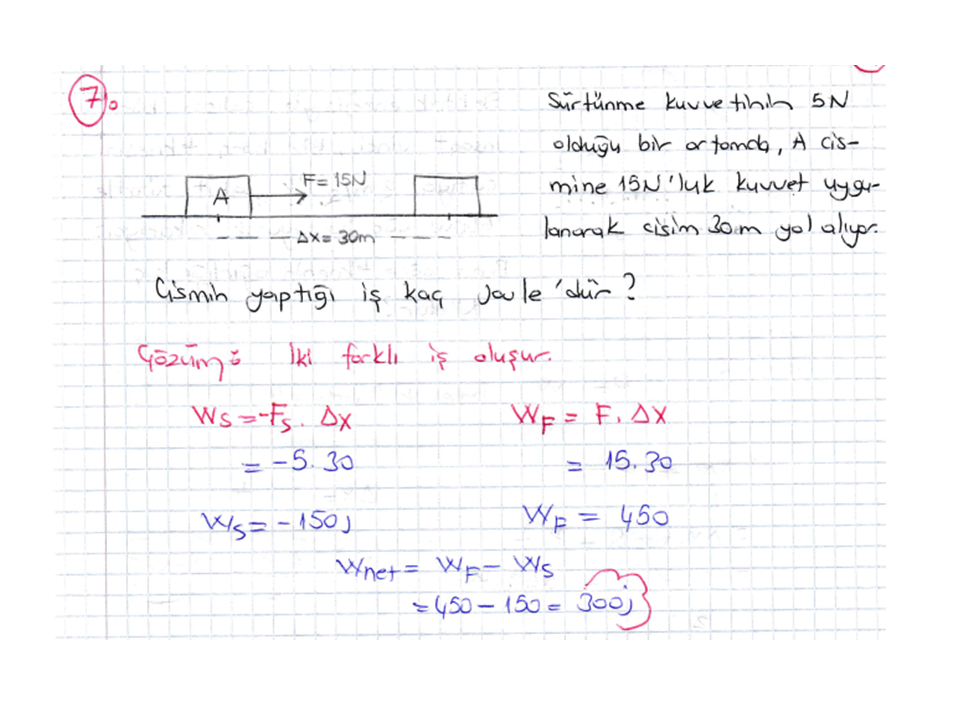 7.
Sürtünme kuvvetinin 5N
olduğu bir ortamda, A cis-
mine 15N'luk kuvvet uygu-
lanarak cisim 30m yol alıyor.
F= 15N
A
Δx= 30m
Cismin yaptığı iş kaç Joule'dür?
Çözüm: İki farklı iş oluşur.
Ws =-Fs. Δx
WF = F. Δx
= -5.30
= 15.30
Ws = -150j
WF = 450
Wnet = WF - Ws
= 450 - 150 = 300j